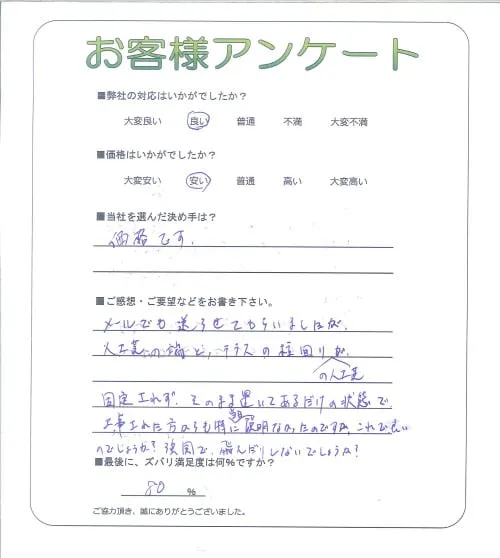 お客様アンケート
■弊社の対応はいかがでしたか？
大変良い 良い 普通 不満 大変不満
■価格はいかがでしたか？
大変安い 安い 普通 高い 大変高い
■当社を選んだ決め手は？
価格です。
■ご感想・ご要望などをお書き下さい。
メールでも送らせてもらいましたが、
人工芝の端と、テラスの柱回りが、
の人工芝
固定されず、そのまま置いてあるだけの状態で、
工事された方からも特に説明なかったのですが、これで良い
のでしょうか？強風で、飛んだりしないでしょうか？
■最後に、ズバリ満足度は何％ですか？
80 ％
ご協力頂き、誠にありがとうございました。